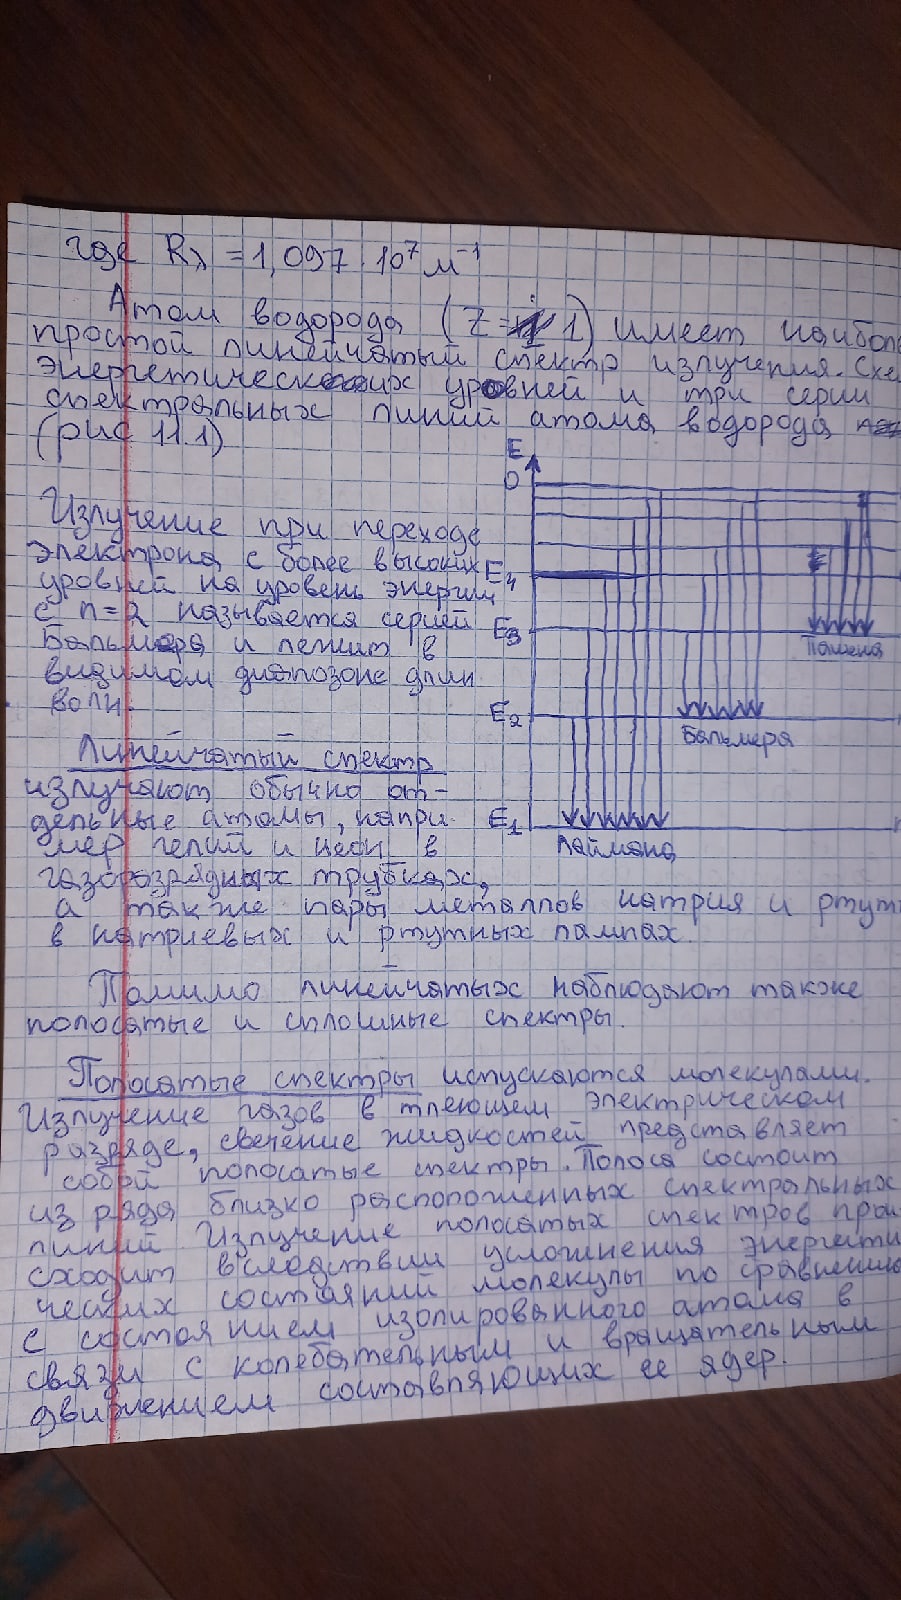 где Rλ = 1,097 · 10⁷ м⁻¹
Атом водорода (Z = 1) имеет наибол
простой линейчатый спектр излучения. Схе
энергетических уровней и три серии
спектральных линий атома водорода
(рис 11.1)
E
0
E4
E3
E2
E1
Пашена
Бальмера
Лаймана
Излучение при переходе
электрона с более высоких
уровней на уровень энергии
с n=2 называется серией
Бальмера и лежит в
видимом диапозоне длин
волн.
Линейчатый спектр
излучают обычно от-
дельные атомы, напри
мер гелий и неон в
газоразрядных трубках,
а также пары металлов натрия и ртут
в натриевых и ртутных лампах.
Помимо линейчатых наблюдают также
полосатые и сплошные спектры.
Полосатые спектры испускаются молекулами.
Излучение газов в тлеющем электрическом
разряде, свечение жидкостей представляет
собой полосатые спектры. Полоса состоит
из ряда близко расположенных спектральных
линий Излучение полосатых спектров прои
сходит вследствии усложнения энергети
ческих состояний молекулы по сравнению
с состоянием изолированного атома в
связи с колебательным и вращательным
движением составляющих ее ядер.